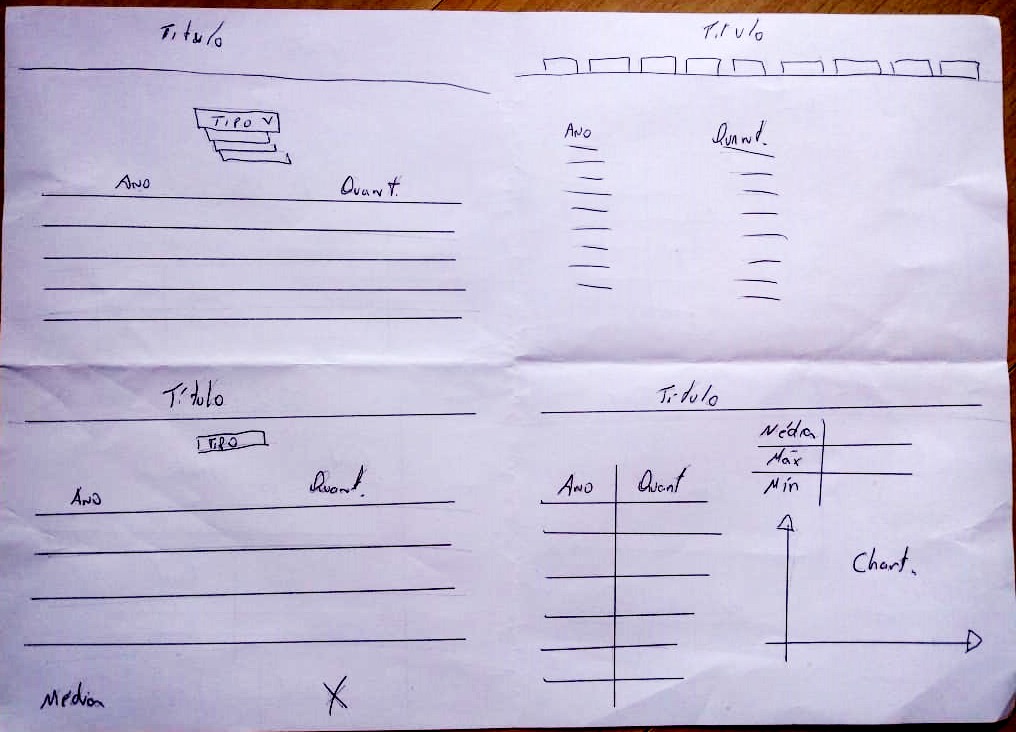 Titulo
TIPO V
ANO Quant.
Titulo
ANO Quant.
Título
TIPO
ANO Quant.
Média X
Titulo
Média
Máx
Mín
Ano Quant
Chart.